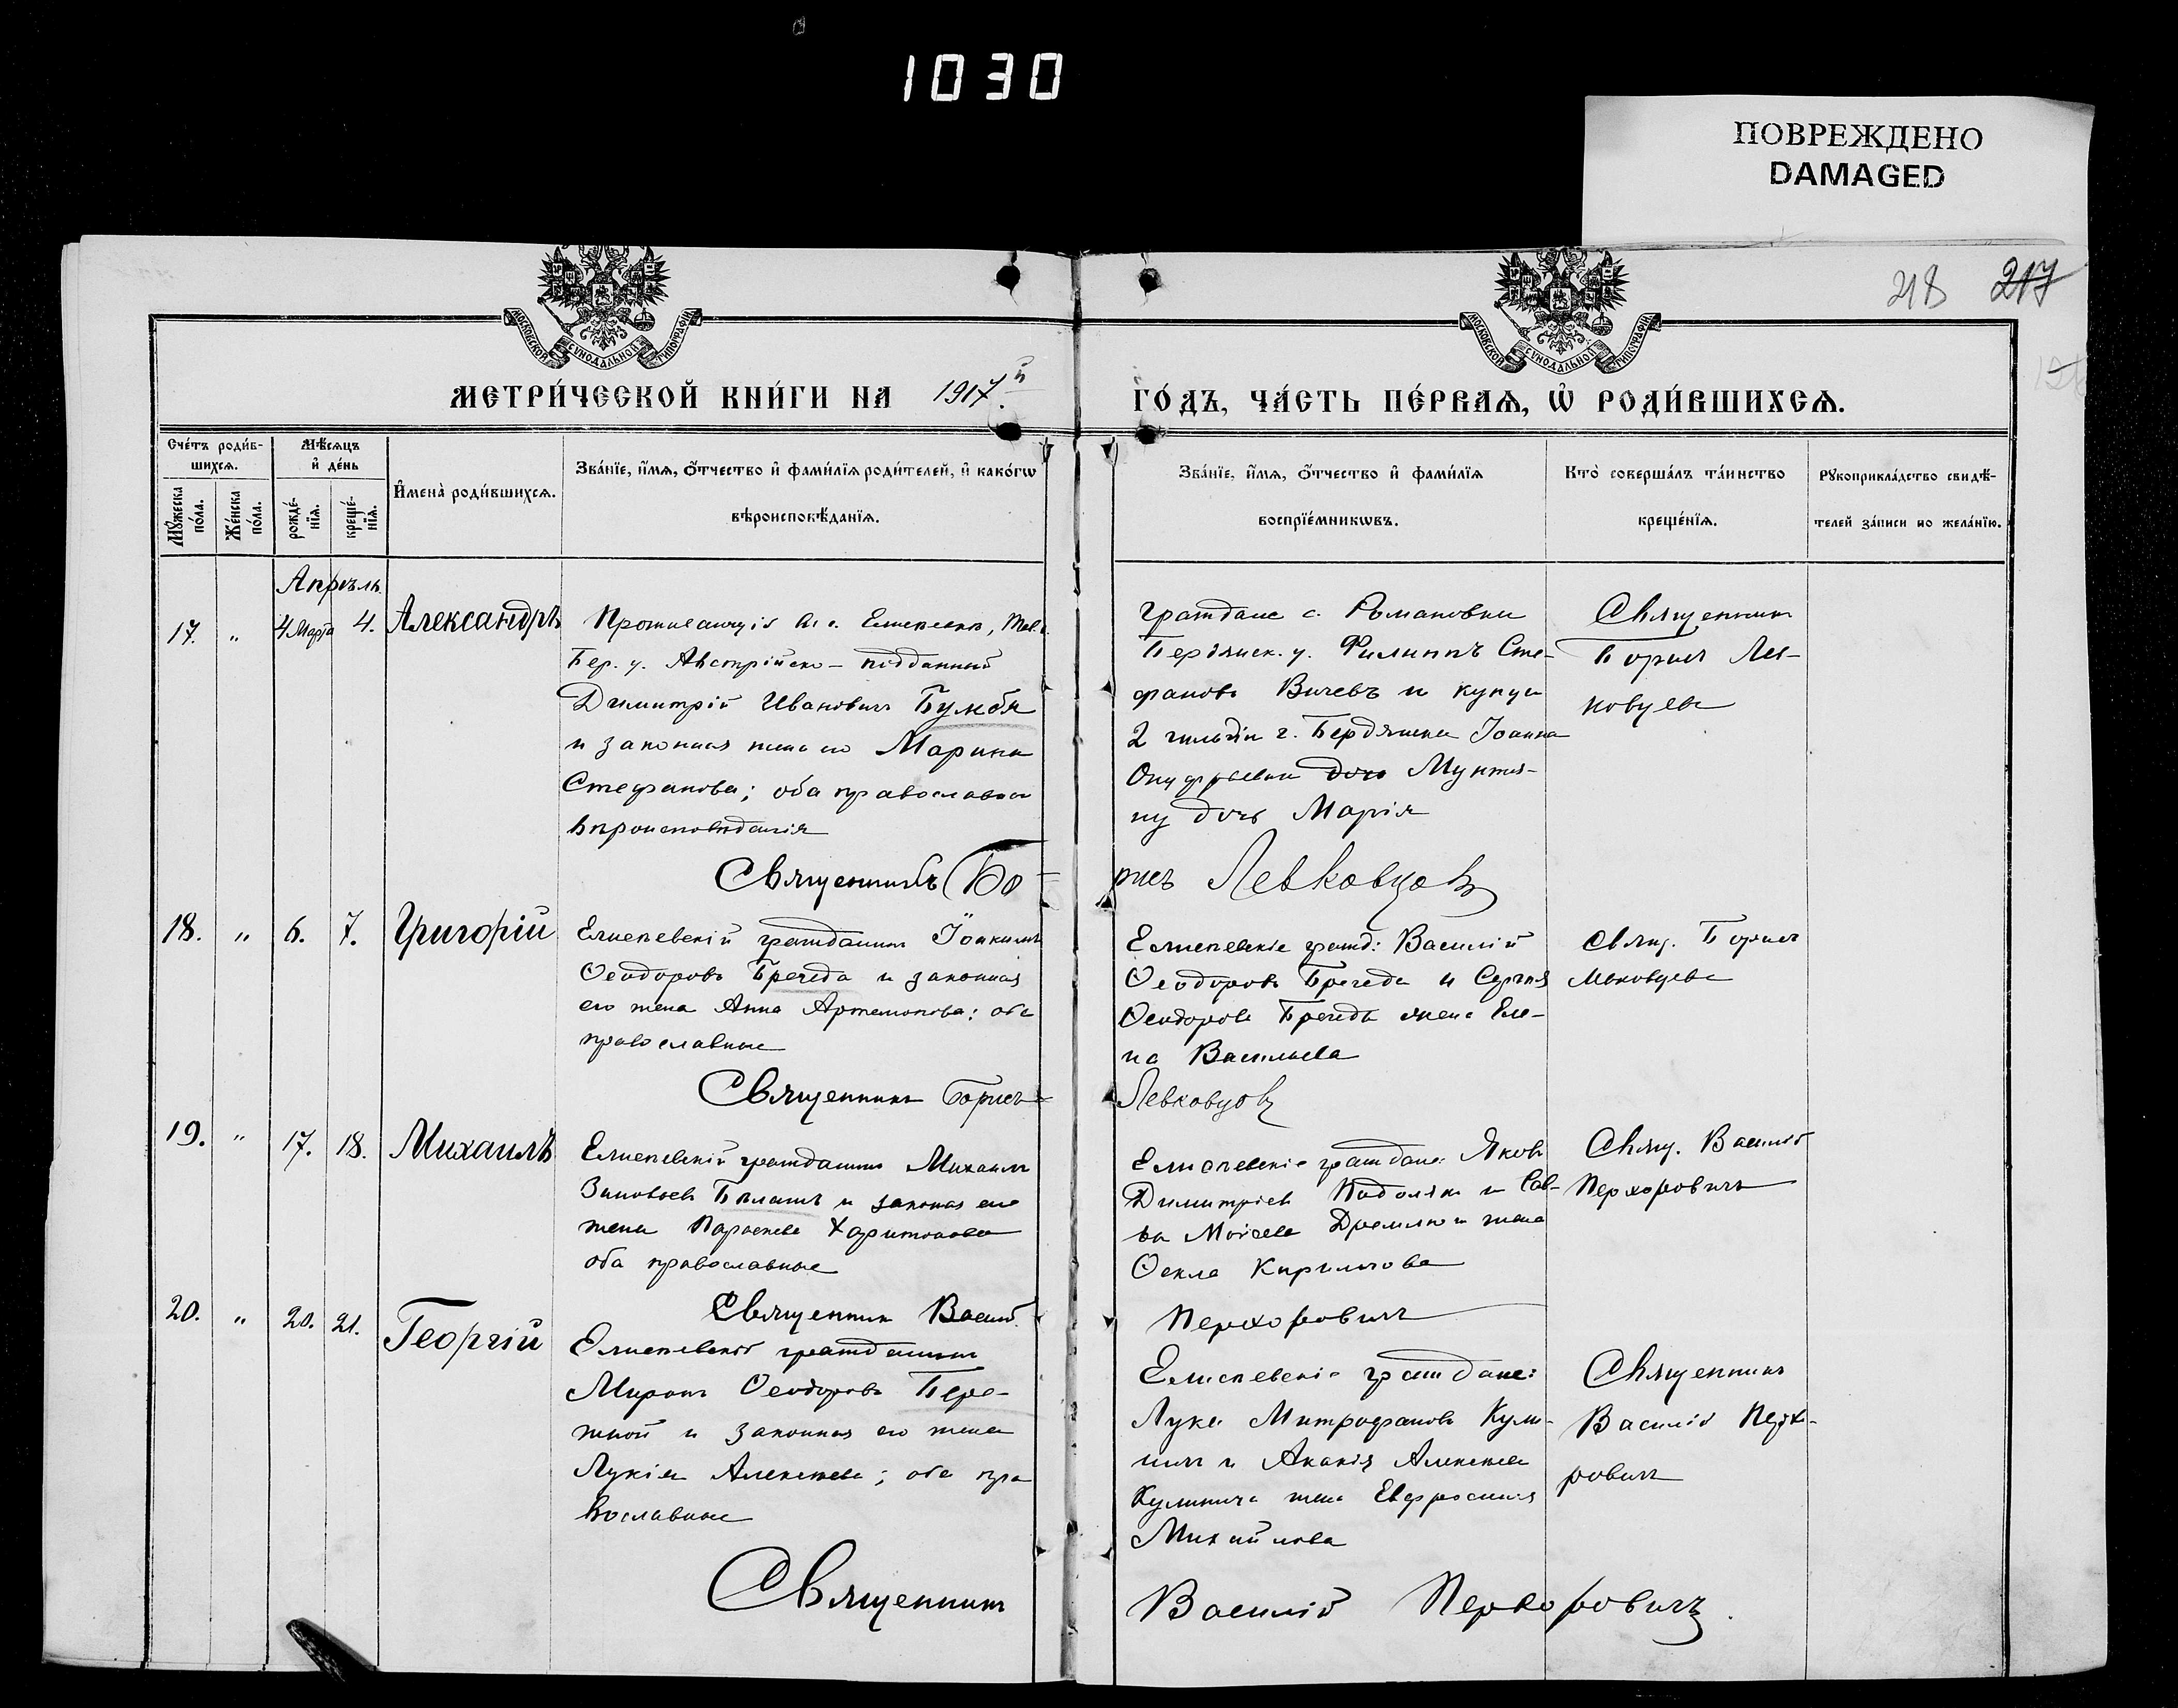 1030
ПОВРЕЖДЕНО
DAMAGED
218 217
МОСКОВСКОЙ СѴНОДАЛЬНОЙ ТИПОГРАФІИ
МОСКОВСКОЙ СѴНОДАЛЬНОЙ ТИПОГРАФІИ
МЕТРИ́ЧЕСКОЙ КНИ́ГИ НА 1917й
ГО́ДЪ, ЧА́СТЬ ПЕ́РВАѦ, Ѡ҆ РОДИ́ВШИХСѦ.
Сче́тъ роди́в-
шихсѧ.
Мѣ́сѧцъ
и҆ де́нь
Мꙋ́жеска
по́ла.
Же́нска
по́ла.
рожде́-
нїѧ.
креще́-
нїѧ.
И҆мена̀ роди́вшихсѧ.
Зва́нїе, и҆́мѧ, ѻ҆́тчество и҆ фами́лїѧ роди́телей, и҆ како́гѡ
вѣроисповѣ́данїѧ.
Зва́нїе, и҆́мѧ, ѻ҆́тчество и҆ фами́лїѧ
воспрїе́мникѡвъ.
Кто̀ соверша́лъ та́инство
креще́нїѧ.
Рꙋкоприкла́дство свидѣ́-
телей за́писи по жела́нїю.
Апрѣль
17. „ 4 Марта 4. Александръ
Проживающій въ с. Елисеевк,
Бер. у. Австрійско-подданный
Димитрій Ивановичъ Бумбя
и законная жена его Марина
Стефанова; оба православн
вѣроисповѣданія
Священникъ Бо-
граждане с. Романовки
Бердянск. у. Филиппъ Сте-
фановъ Вичевъ и купца
2 гильдіи г. Бердянска Іоанна
дочь
ну дочь Марія
рисъ Левковцовъ
Священникъ
Борисъ Лев-
ковцевъ
18. „ 6. 7. Григорій
Елисеевскій гражданинъ Іоакимъ
Ѳеодоровъ Бречеда и законная
его жена Анна Артемонова: оба
православные
Священникъ Борисъ
Елисеевскіе гражд: Василій
Ѳеодоровъ Бречеда и Сергѣя
Ѳеодорова Бречеда жена Еле-
на Васильева
Левковцовъ
Свящ. Борисъ
Левковцевъ
19. „ 17. 18. Михаилъ
Елисеевскій гражданинъ Михаилъ
Зиновьевъ и законная его
жена Параскева Харитонова
оба православные
Священникъ Васил.
Елисеевскіе граждане: Яковъ
Димитріевъ Подолякъ и Сав-
ва Моисеева жена
Ѳекла Кириллова
Перхоровичъ
Свящ. Василій
Перхоровичъ
20. „ 20. 21. Георгій
Елисеевскій гражданинъ
Миронъ Ѳеодоровъ Бере-
жной и законная его жена
Лукія Алексѣева; оба пра
вославные
Священникъ
Елисеевскіе граждане:
Лука Митрофановъ Кули-
ничъ и Акакія Алексѣева
Кулинича жена Евфросинія
Михайлова
Василій Перхоровичъ.
Священникъ
Василій Перхо-
ровичъ